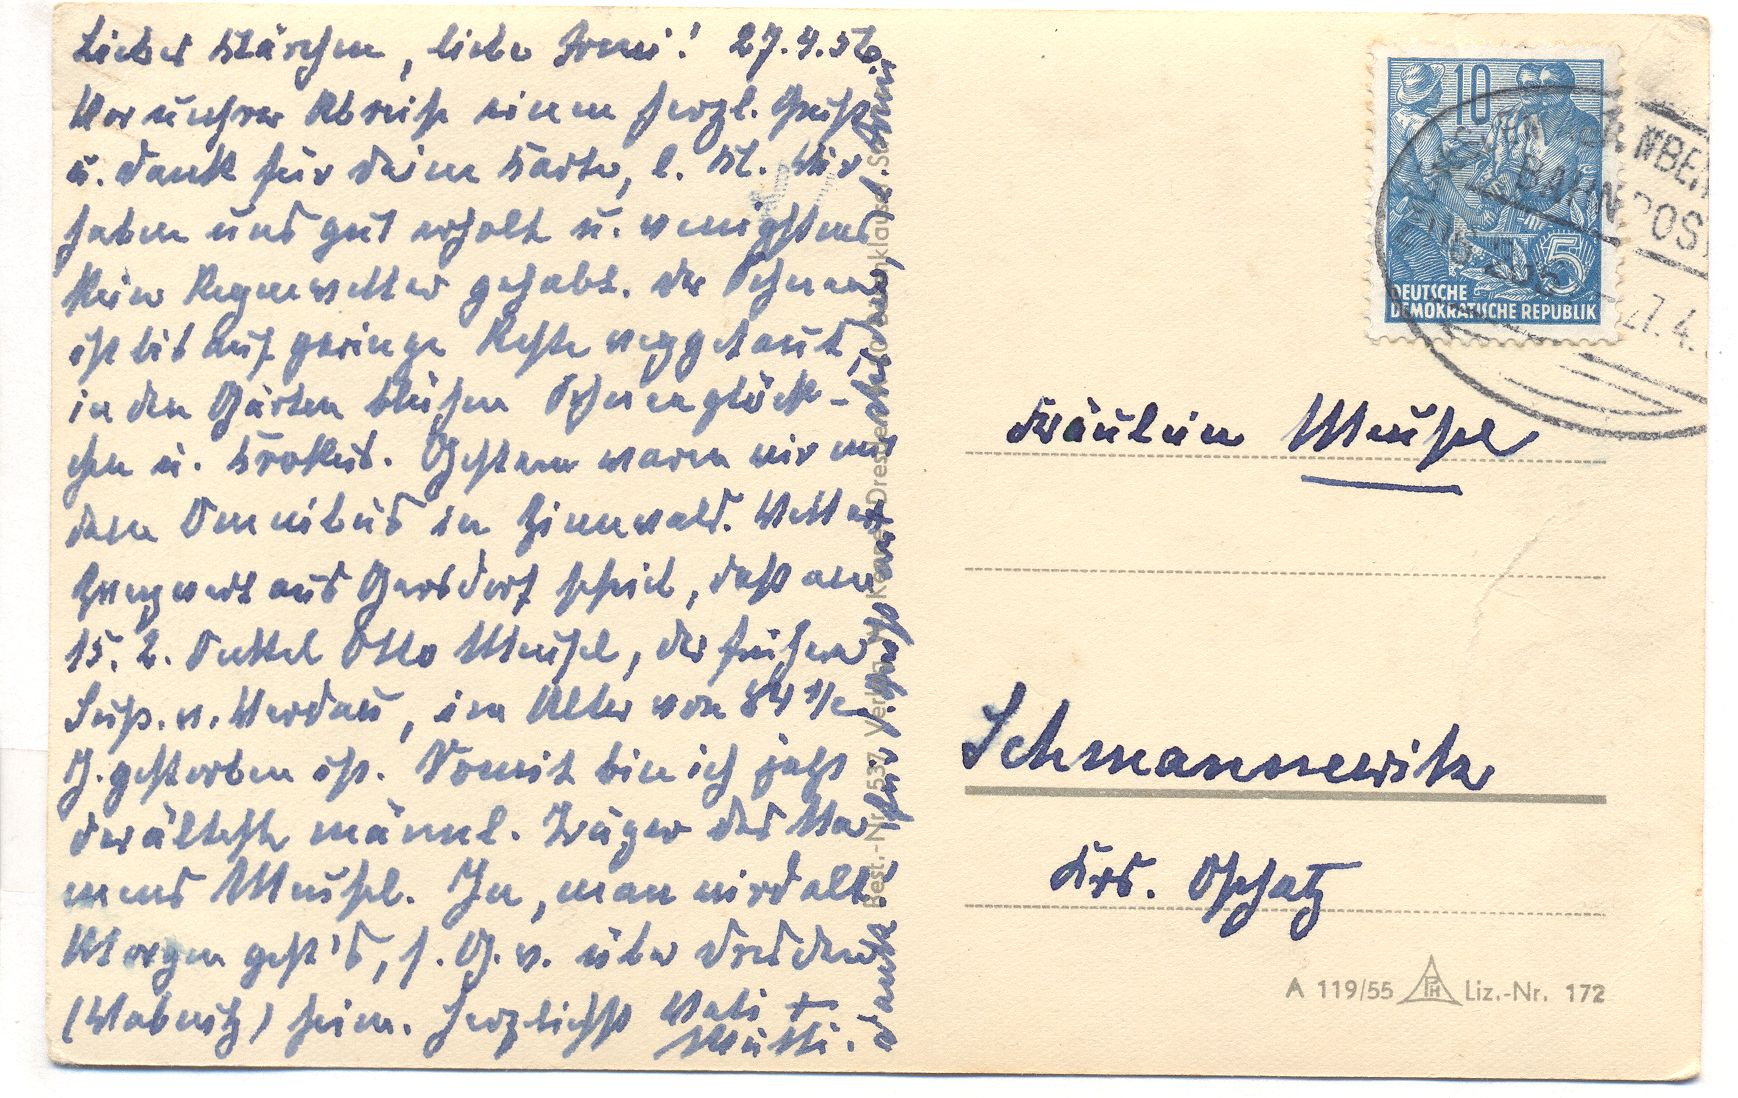 Liebes Märchen, liebe Irmi! 27.4.56.
Vor unsrer Abreise einen herzl. Gruß
u. Dank für Deine Karte, l. M. Wir
haben uns gut erholt u. wenigstens
kein Regenwetter gehabt. Der Schnee
ist bis auf geringe Reste weggetaut,
in den Gärten blühen Schneeglöck-
chen u. Krokus. Gestern waren wir mit
dem Omnibus in Zinnwald. Vetter
aus Gersdorf schrieb, daß am
15. 2. Onkel Otto Meusel, der frühere
Sup. v. Werdau, im Alter von 84 1/2
J. gestorben ist. Somit bin ich jetzt
der älteste männl. Träger des Na-
mens Meusel. Ja, man wird alt.
Morgen geht's, s. G. w. über Dresden
(Wabnitz) heim. Herzlichst Vati +
Mutti.
Dank für
Best.-Nr. 537 Verlag
Dresden
10
5
DEUTSCHE
DEMOKRATISCHE REPUBLIK
BAHNPOST
ZUG
27.4.
Fräulein Meusel
Schmannewitz
Krs. Oschatz
A 119/55 PH Liz.-Nr. 172